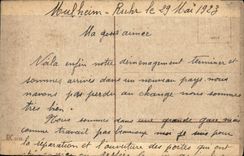 Mulheim-Ruhr le 29 Mai 1923
Ma gosse aimée
Voila enfin notre déménagement terminer et
sommes arrivés dans un nouveau pays nous
navons pas perdu au change nous sommes
tres bien.
Nous somme dans une grande gare mais
comme travail pas beaucoup moi je suis pour
la réparation et l'ouverture des portes qui ont